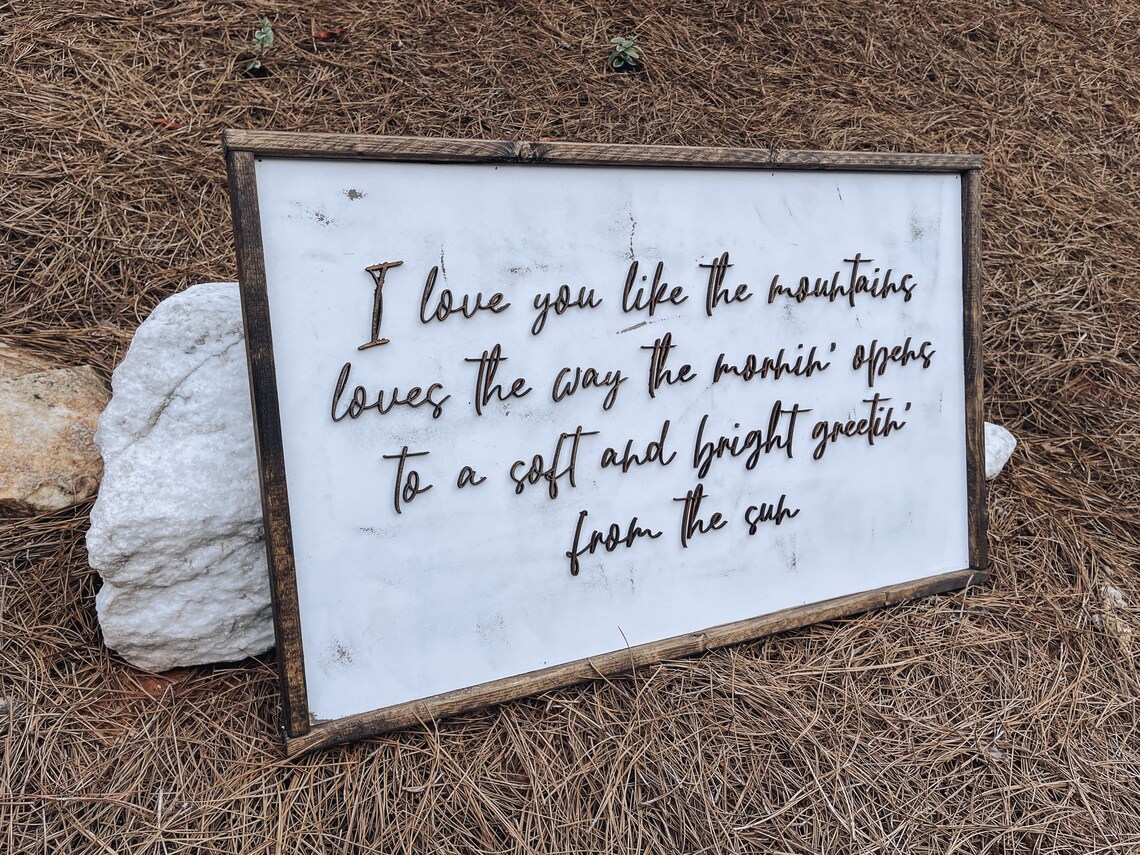 I love you like the mountains
loves the way the mornin' opens
to a soft and bright greetin'
from the sun